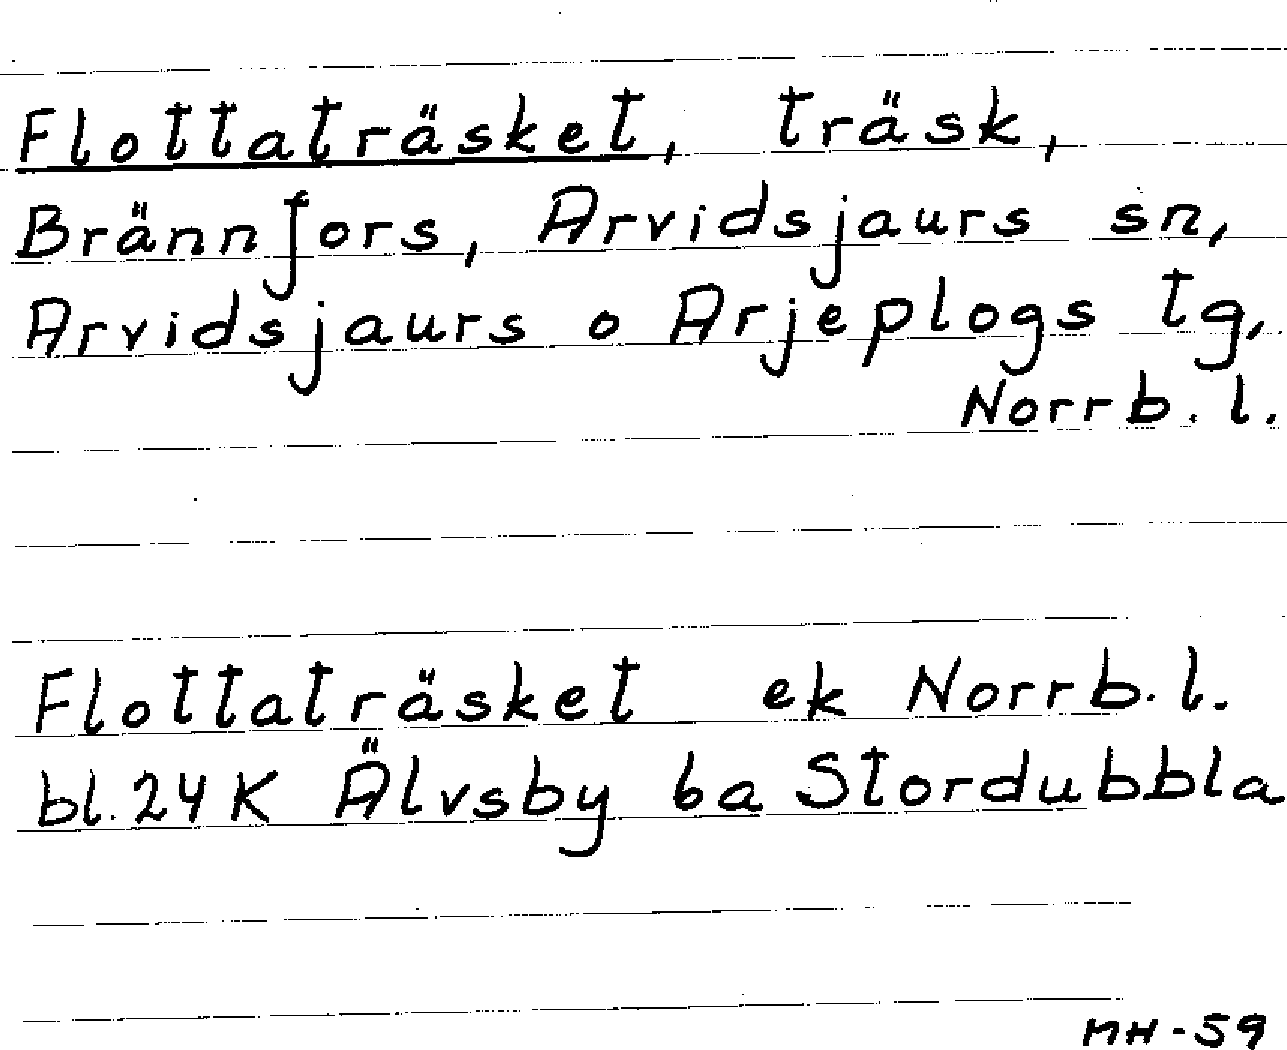 Flottaträsket, träsk,
Brännfors, Arvidsjaurs sn,
Arvidsjaurs o Arjeplogs tg,
Norrb. l.
Flottaträsket ek Norrb. l.
bl. 24 K Älvsby 6a Stordubbla
MH-59